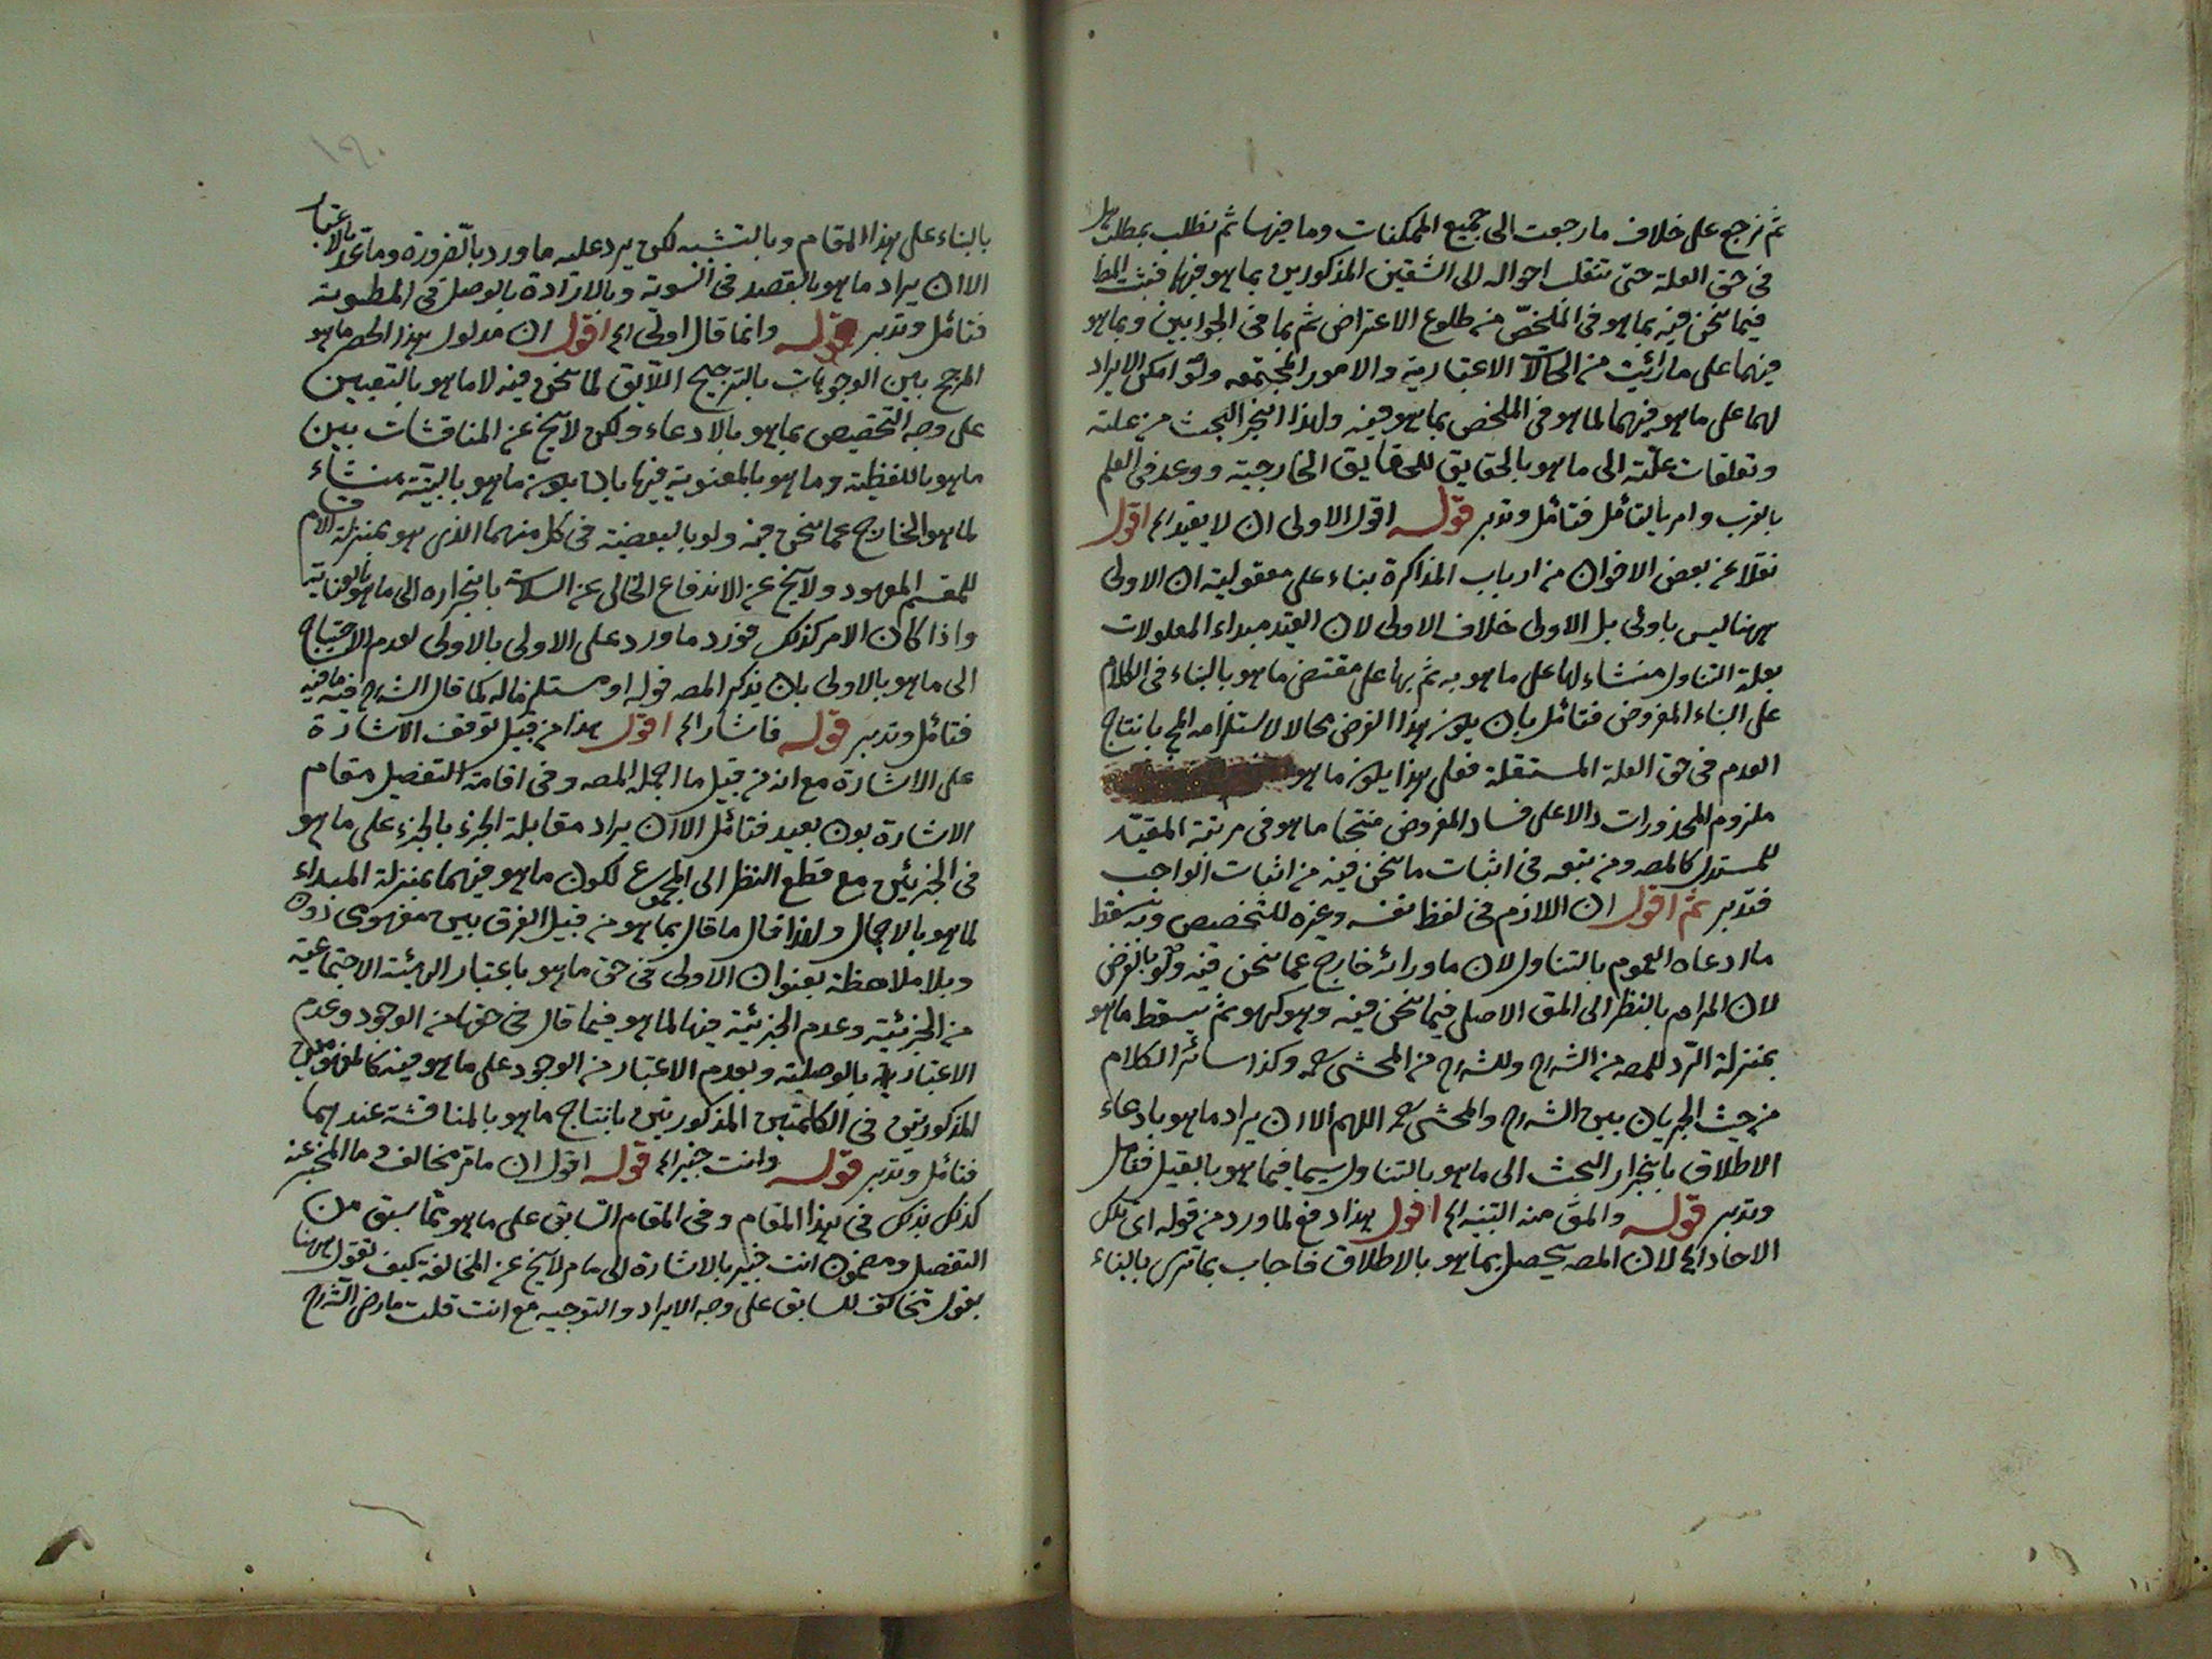 ثم نرجع على خلاف ما رجعت الى جميع الممكنات وما فيها ثم نطلب بمطلب هل
فى حق العلة حتى تنقلب احواله الى الشقين المذكورين بما هو فيها فيثبت المط
فيما نحن فيه بما هو فى الملخص من طلوع الاعتراض ثم بما فى الجوابين وبما هو
فيهما على ما رأيت من الحالات الاعتبارية والامور المجتمعه ولو امكن الايراد
لهما على ما هو فيهما لما هو فى الملخص بما هو فيه ولهذا انجر البحث من علته
وتعلقات علته الى ما هو بالحقايق للحقايق الخارجية ووعد فى العلم
بالقرب وامر بالتأمل فتأمل وتدبر قوله اقول الاولى ان لا يقيد الخ اقول
نقلا عن بعض الاخوان من ارباب المذاكرة بناء على معقوليته ان الاولى
ههنا ليس باولى بل الاولى خلاف الاولى لان القيد مبداء المعلولات
بعلة التناول منشاء لها على ما هو به ثم بها على مقتضى ما هو بالبناء فى الكلام
على البناء المفروض فتأمل بان يكون هذا الفرض محالا لاستلزامه المح بانتاج
العدم فى حق العلة المستقلة فعلى هذا يكون ما هو
ملزوم المحذورات دالا على فساد المفروض منتجا ما هو فى مرتبة المقيد
للمستدل كالمصه ومن يتبعه فى اثبات ما نحن فيه من اثبات الواجب
فتدبر ثم اقول ان اللازم فى لفظ نفسه وغيره للتخصيص وبه يسقط
ما ادعاه العموم بالتناول لان ما ورائه خارج عما نحن فيه ولو بالفرض
لان المرام بالنظر الى المق الاصلى فيما نحن فيه وهو كهو ثم يسقط ما هو
بمنزلة الرد للمصه من الشرح وللشرح من المحشى رحمه وكذا سائر الكلام
من حيث الجريان بين الشرح والمحشى رحمه اللهم الا ان يراد ما هو بادعاء
الاطلاق بانجرار البحث الى ما هو بالتناول سيما فيما هو بالقيل فتأمل
وتدبر قوله والمق منه التنبيه الخ اقول هذا دفع لما ورد من قوله اى بكل
الاحاد الخ لان المصه يحصل بما هو بالاطلاق فاجاب بما ترى بالبناء
بالبناء على هذا المقام وبالتشبيه لكن يرد عليه ما ورد بالضرورة وما بالاعتبار
الا ان يراد ما هو بالقصد فى السوية وبالارادة بالوصل فى المطلوبة
فتأمل وتدبر قوله وانما قال اولى الخ اقول ان مدلول هذا الحصر ما هو
المرجح بين الوجوبات بالترجيح اللايق لما نحن فيه لا ما هو بالتعيين
على وجه التخصيص بما هو بالادعاء ولكن لا يخ عن المناقشات بين
ما هو باللفظية وما هو بالمعنوية فيها بان يكون ما هو بالبينة منشاء
لما هو الخارج عما نحن فيه ولو بالبعضية فى كل منهما الذى هو بمنزلة الام
للمقسم المعهود ولا يخ عن الاندفاع الخالى عن السلامة بانجراره الى ما هو بالعناية
واذا كان الامر كذلك فورد ما ورد على الاولى بالاولى لعدم الاحتياج
الى ما هو بالاولى بان يذكر المصه قوله او مستلزما له كما قال الشرح فيه ما فيه
فتأمل وتدبر قوله فاشار الخ اقول هذا من قبيل توقف الاشارة
على الاشارة مع انه من قبيل ما اجمله المصه وفى اقامة التفصيل مقام
الاشارة بون بعيد فتأمل الا ان يراد مقابلة الجزء بالجزء على ما هو
فى الجزئين مع قطع النظر الى المجموع لكون ما هو فيهما بمنزلة المبداء
لما هو بالاجمال ولهذا قال ما قال بما هو من قبيل الفرق بين مفهومى ذون
وبلا ملاحظة بعنوان الاولى فى حق ما هو باعتبار الهيئة الاجتماعية
من الجزئية وعدم الجزئية فيها لما هو فيما قال فى حقها من الوجود وعدم
الاعتبارية بالوصلية وبعدم الاعتبار من الوجود على ما هو فيه كالمفهومين
المذكورتين فى الكلمتين المذكورتين بانتاج ما هو بالمناقشة عندهما
فتأمل وتدبر قوله وانت خبير الخ قوله اقول ان ما مر مخالف وما المخبر عنه
كذلك بذلك فى هذا المقام وفى المقام السابق على ما هو مما سبق من
التفصيل ومضمون انت خبير بالاشارة الى ما مر لا يخ عن المخالفة كيف تقول ههنا
بقول تخالف للسابق على وجه الايراد والتوجيه مع انت قلت ما رضى الشرح